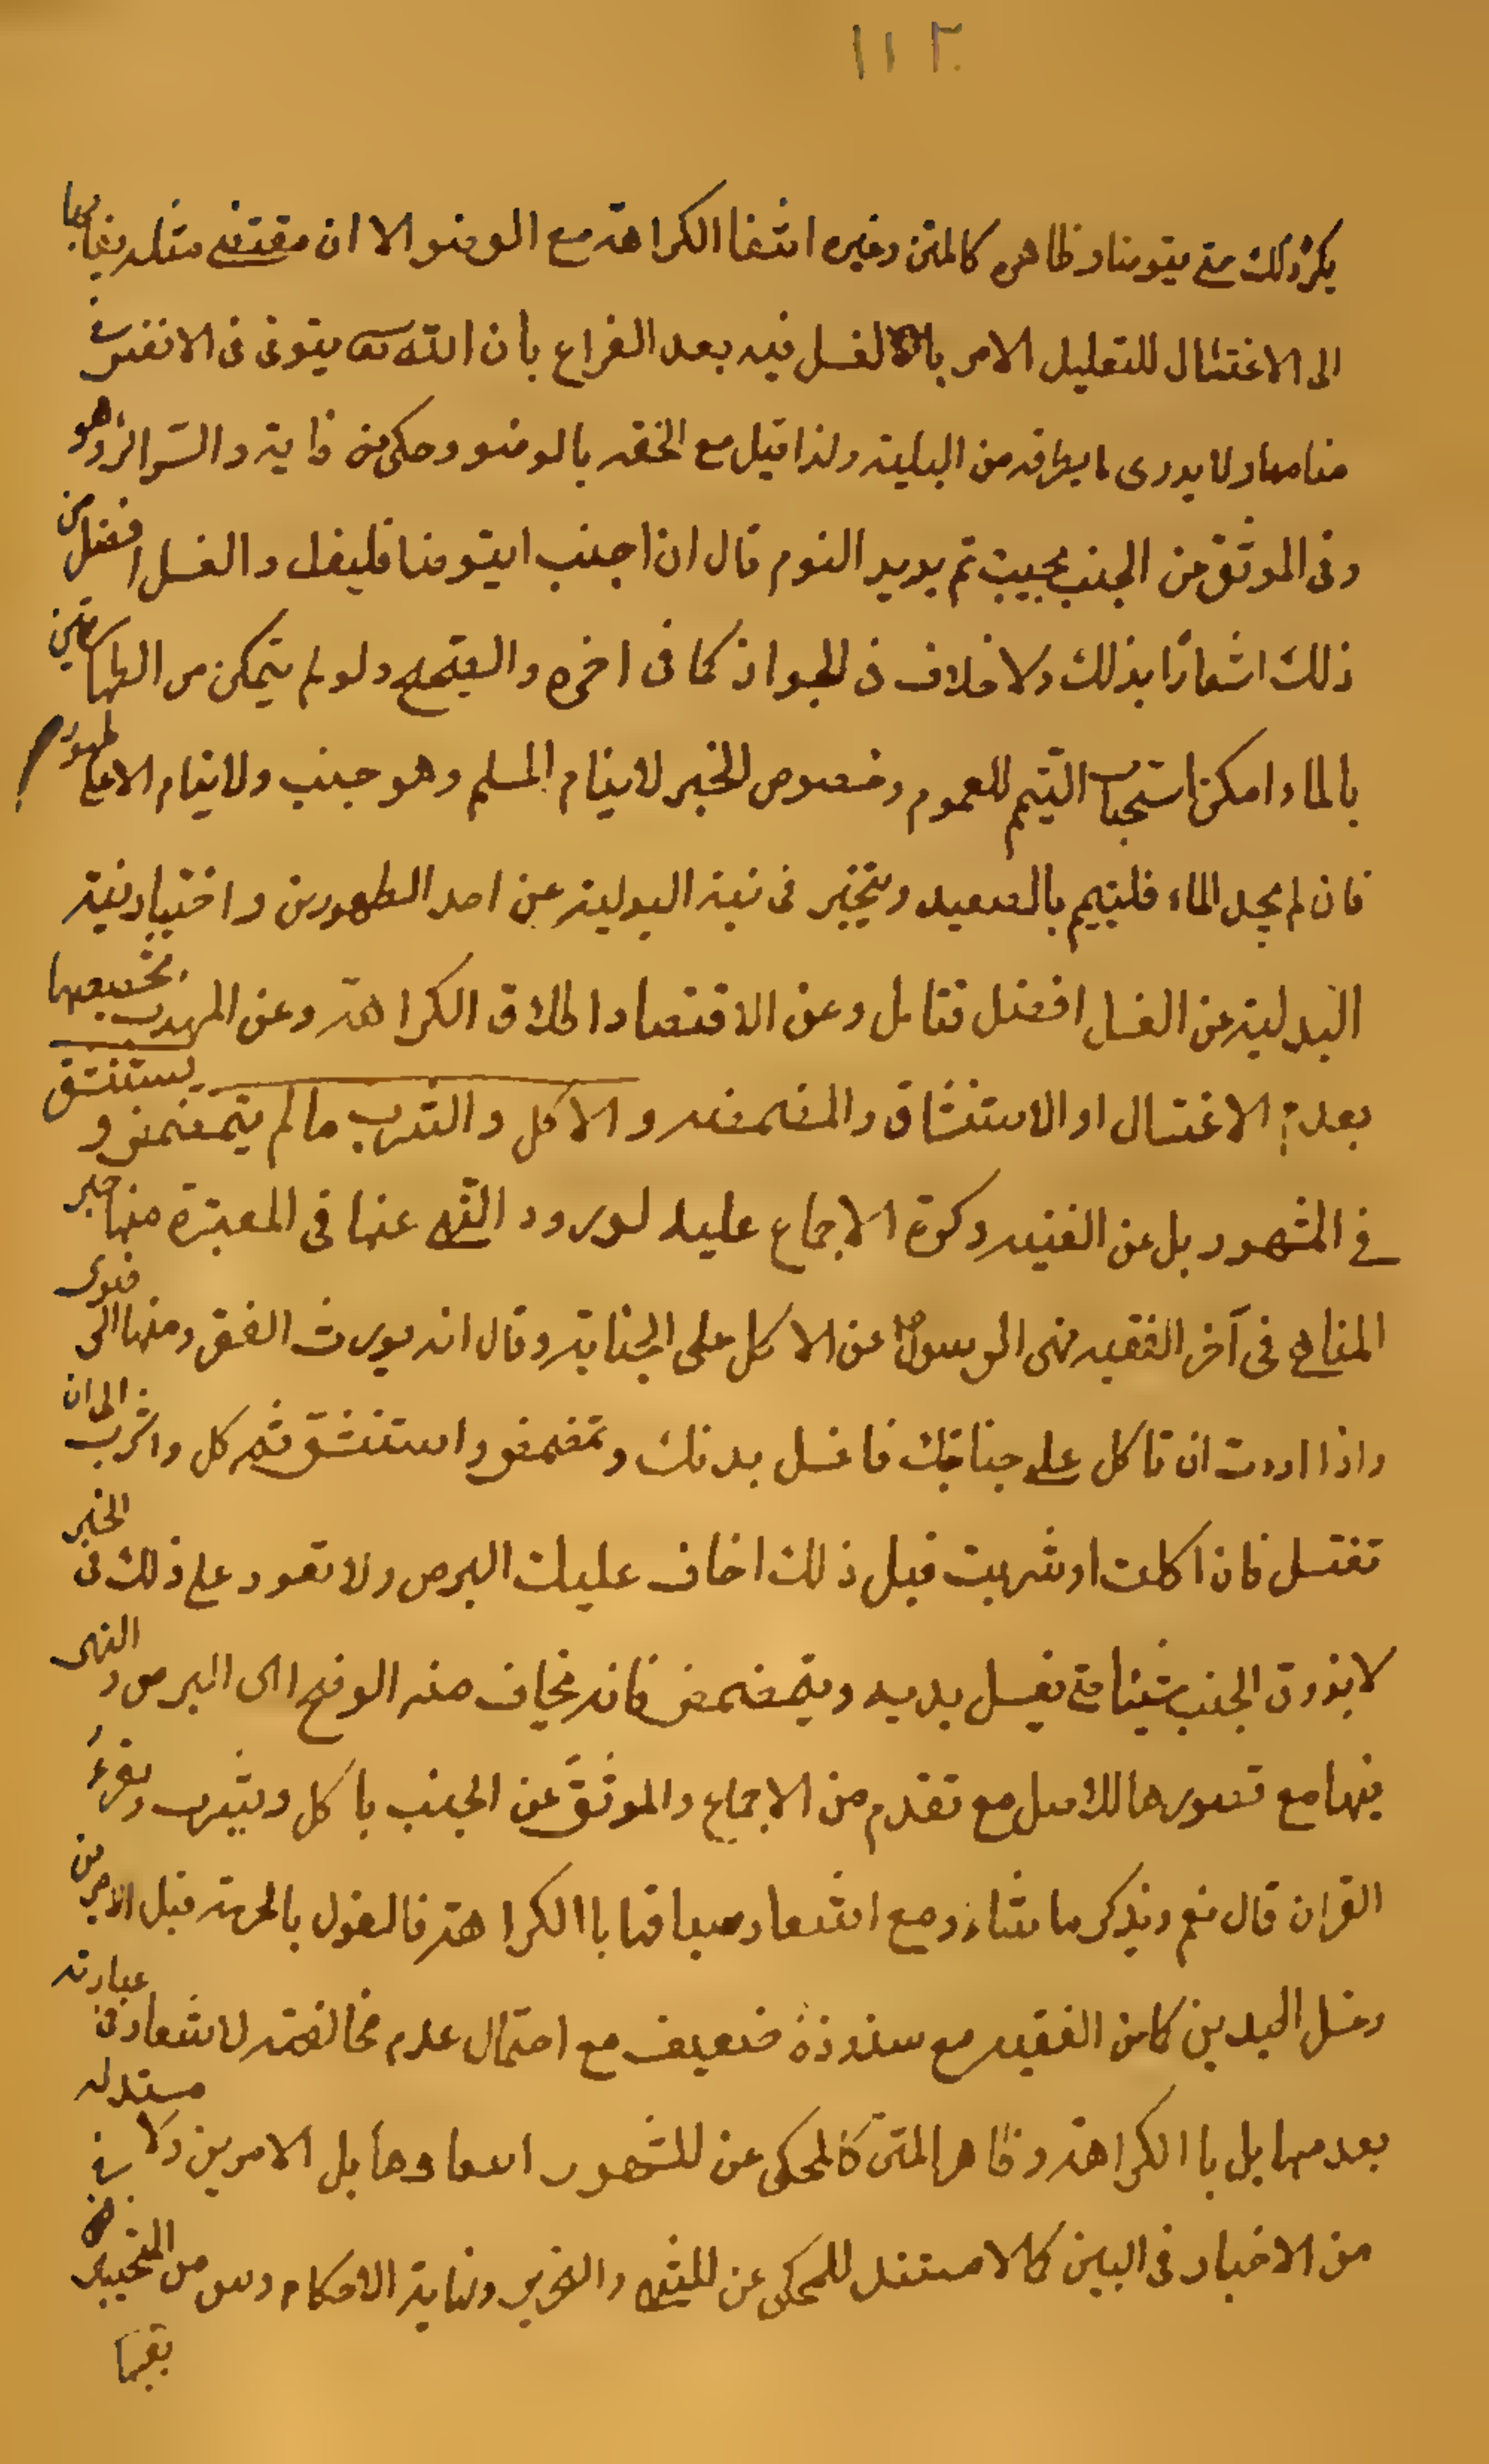 ١١٢
يكره ذلك حتى يتوضأ وظاهره كالمتن وغيره انتفا الكراهة مع الوضو الا ان مقتضى مثله بقاؤها
الى الاغتسال للتعليل الامر بالغسل فيه بعد الفراغ بان الله تعه يتوفى الانفس في
منامها ولا يدرى ما يطرقه من البلية ولذا قيل مع الخفة بالوضو وحكى عن والسرائر وهو
وفى الموثق عن الجنب يجنب ثم يريد النوم قال ان احب ان يتوضا فليفعل والغسل افضل من
ذلك اشعارا بذلك ولا خلاف فى الجواز كما فى اخره والصحيح ولو لم يتمكن من الطهارتين
بالماء امكن استحباب التيمم للعموم وخصوص الخبر لا ينام المسلم وهو جنب ولا ينام الا على طهور
فان لم يجد الماء فليتيمم بالصعيد ويتخير فى نية البدلية عن احد الطهورين واختيار نية
البدلية عن الغسل افضل فتامل وعن الاقتصاد اطلاق الكراهة وعن المهذب تخصيصها
بعدم الاغتسال او الاستنشاق والمضمضه و الاكل والشرب ما لم يتمضمض و يستنشق
فى المشهور بل عن الغنيه وكره الاجماع عليه لورود النهى عنها فى المعتبرة منها خبر
المناهى فى آخر الفقيه نهى الرسول ص عن الاكل على الجنابة وقال انه يورث الفقر ومنها الرضوى
واذا اردت ان تاكل على جنابتك فاغسل يدك وتمضمض واستنشق ثم كل واشرب الى ان
تغتسل فان اكلت او شربت قبل ذلك اخاف عليك البرص ولا تعود على ذلك فى الخبر
لا يذوق الجنب شيئا حتى يغسل يديه ويتمضمض فانه يخاف منه الوضح اى البرص و النهى
فيها مع قصورها مع تقدم من الاجماع والموثق عن الجنب ياكل ويشرب ويقرء
القران قال نعم ويذكر ما شاء ومع اشعار سياقها باالكراهة فالقول بالحرمة قبل الامرين
وغسل اليدين كما عن الفقيه مع شذوذه ضعيف مع احتمال عدم مخالفته لاشعار فى عبارته
بعدمها بل باالكراهة وظاهر المتن كالمحكى عن المشهور بل الامرين ولا مستند له فى
من الاخبار فى البين كما لا مستند للمحكى عن والتحرير ونهاية الاحكام وس من التخيير
بينها